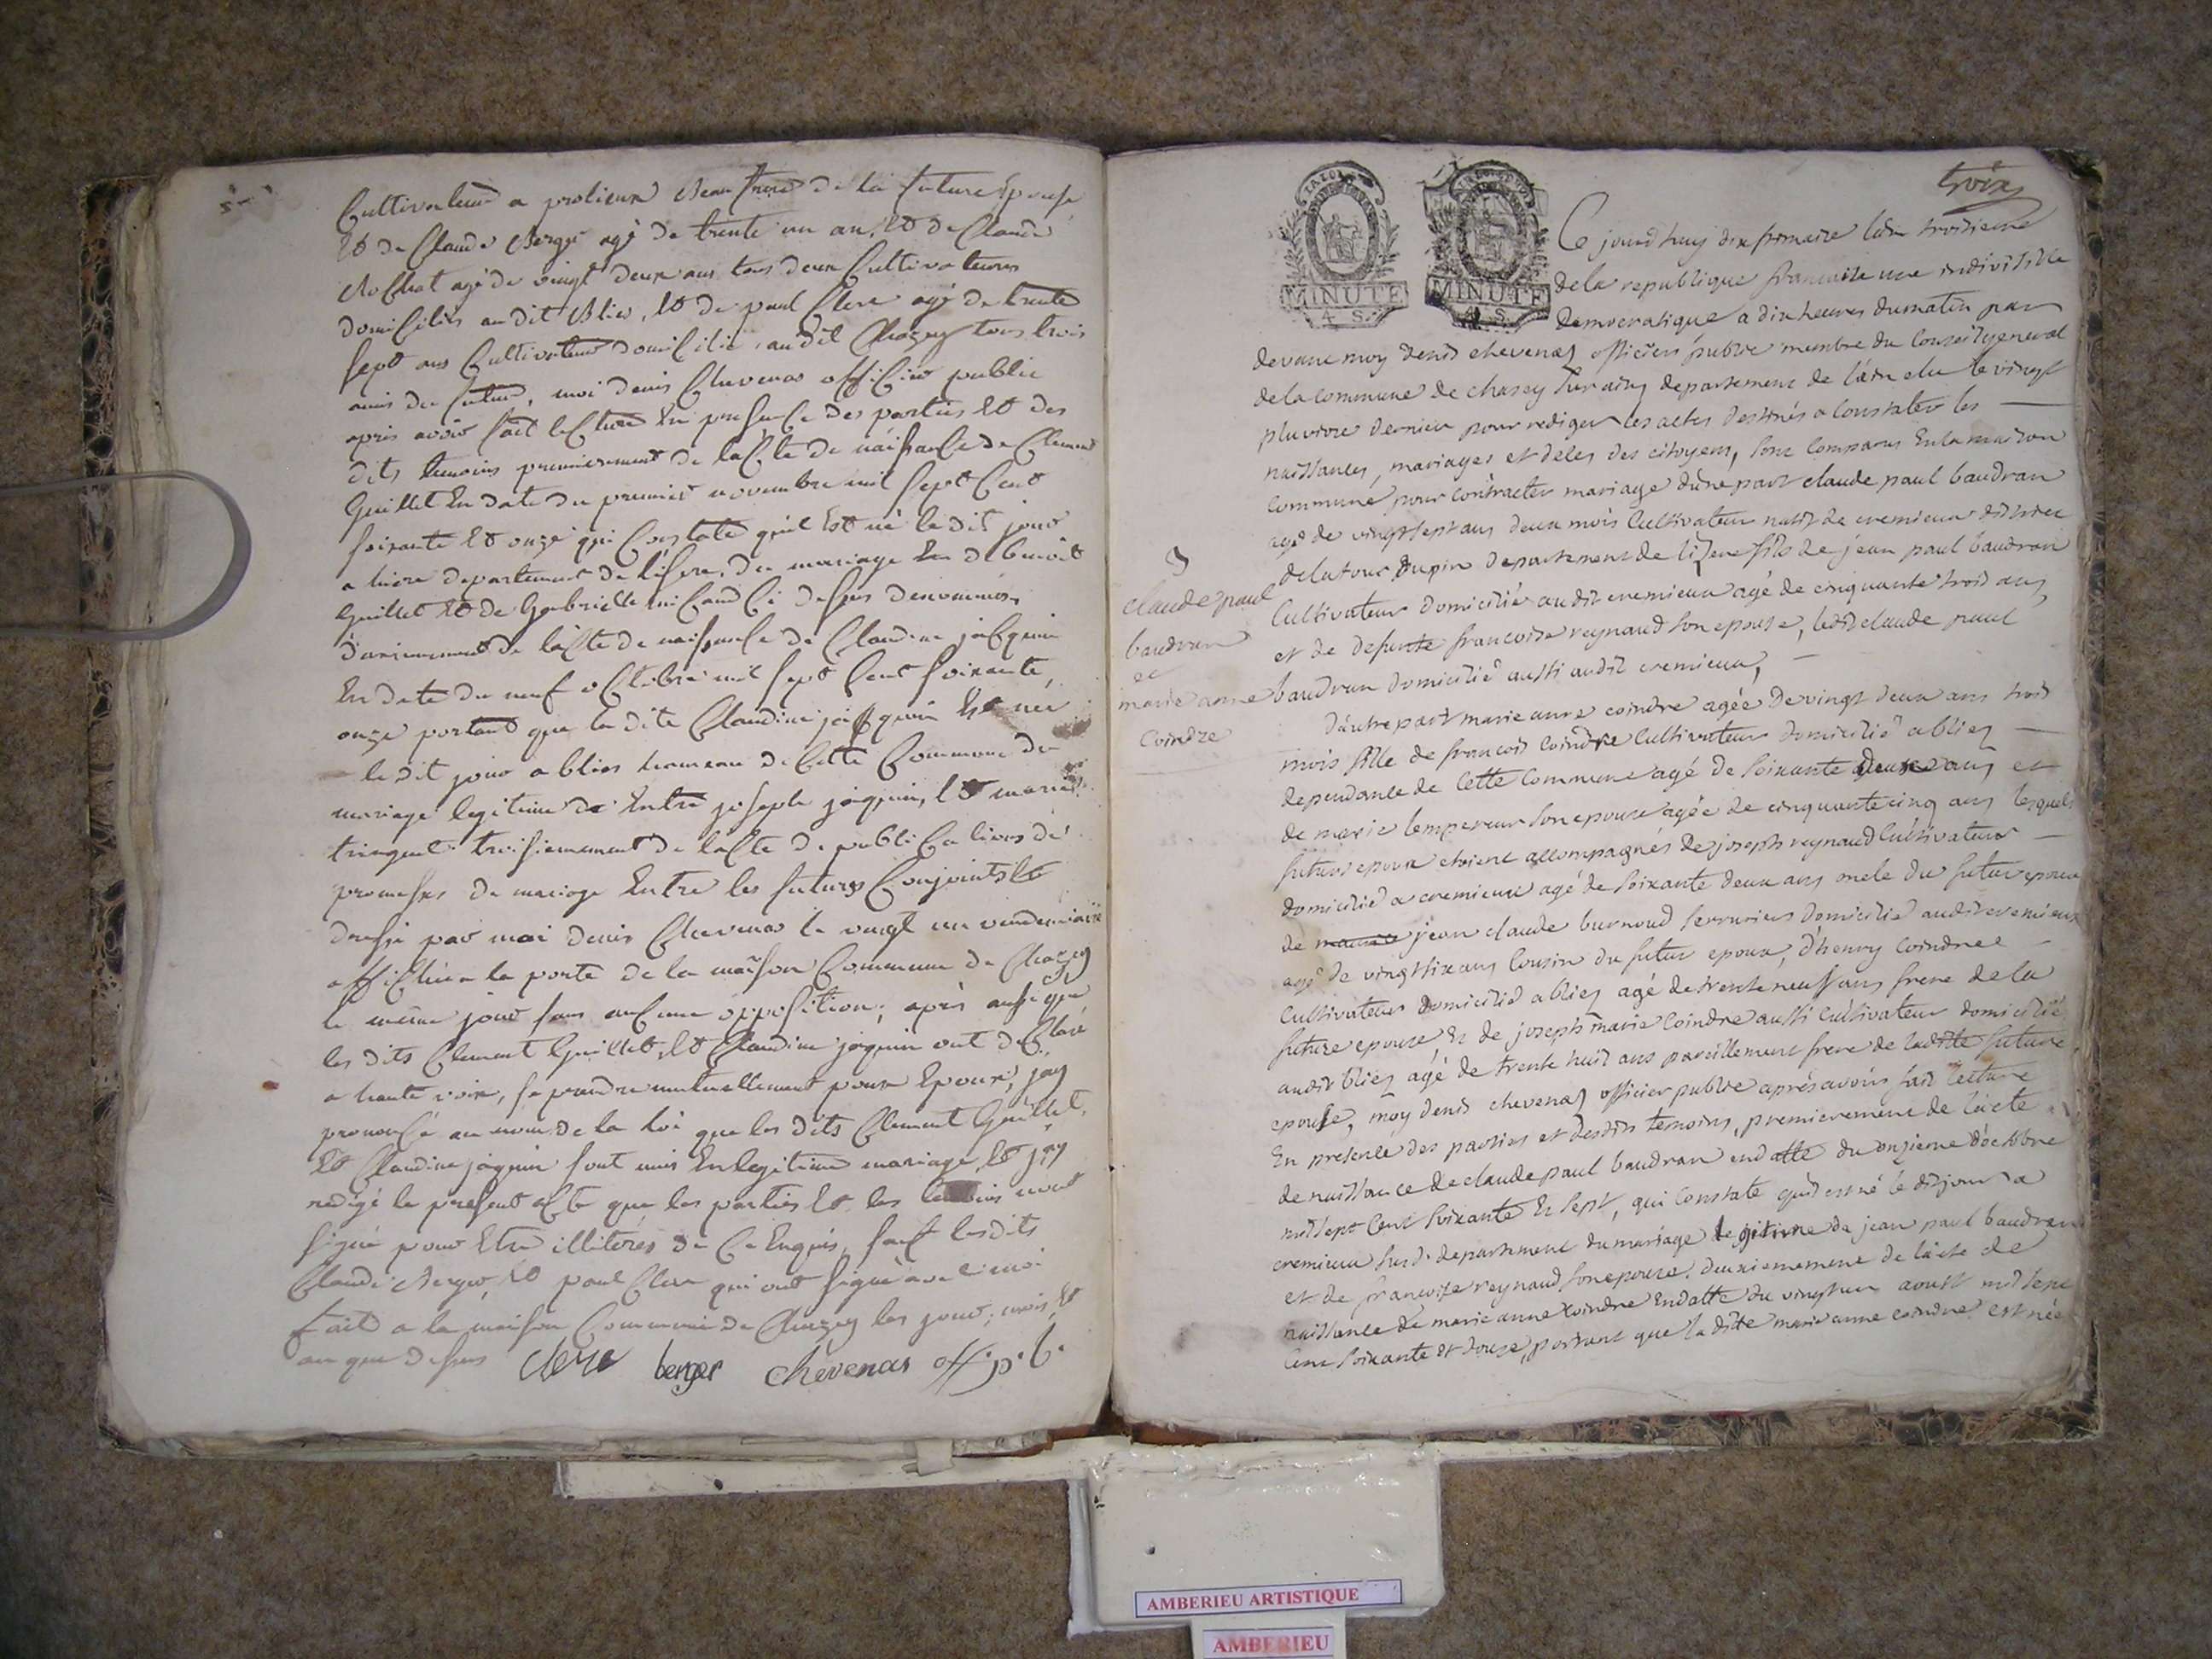 Cultivateur a prolieux Beau frere de la future Epouse
Et de Claude Berger agé de trente un an, Et de Claude
Rochat agé de vingt deux ans tous deux Cultivateurs
domiciliés au dit Blies, Et de paul Clerc agé de trente
sept ans Cultivateur domicilié audit Chazey tous trois
amis du futur, moi denis Chevenas officier public
apres avoir fait lecture En presence des parties Et des
dits temoins premierement de lacte de naissance de Clement
Guillet En date du premier novembre mil sept Cent
soixante Et onze qui Constate quil Est né le dit jour
a departement de lisere, du mariage de benoit
Guillet Et de Gabrielle Ci dessus denommés
de lacte de naissance de Claudine jacquin
En date du neuf octobre mil sept Cent soixante
onze portant que la dite Claudine jacquin Est née
le dit jour a blies hameau de Cette Commune du
mariage legitime de Entre joseph joquin, Et marie
tringuet troisiemement de lacte de publications de
promesses de mariage Entre les futurs Conjoints
dressé par moi denis Chevenas le vingt un vendemiaire
affiché a la porte de la maison Commune de Chazey
le meme jour sans aucune opposition; après aussi que
les dits Clement Guillet, Et Claudine joquin ont declaré
a haute voix, se prendre mutuellement pour Epoux, jay
prononcé au nom de la loi que les dits Clement Guillet,
Et Claudine joquin sont unis En legitime mariage, Et jay
redigé le present acte que les parties Et les temoins nont
signé pour Etre illiterés de Ce Enquis, sauf les dits
Claude Berger, Et paul Clerc qui ont signé avec moi
fait a la maison Commune de Chazey les jour, mois, Et
an que dessus clerc berger chevenas off. p. b.
troix
MINUTE
4. S.
MINUTE
4. S.
Ce jourd huy dix frimaire lan troisieme
de la republique francaise une indivisible
democratique a dix heures du matin par
devant moy denis chevenas officier public membre du Conseil general
de la commune de chasey sur ains departement de l'ain elu le vingt
pluviose dernier pour rediger les actes destinés a Constater les
naissances, mariages et deces des citoyens, sont Comparus En la maison
Commune pour contracter mariage dune part claude paul baudran
agé de vingt sept ans deux mois Cultivateur natif de cremieux district
de la tour dupin departement de lizere fils de jean paul baudran
Cultivateur domicilié audit cremieux agé de cinquante trois ans,
et de defunte francoise reynaud son epouse, ledit claude paul
baudran domicilié aussi audit cremieux,
3
claude paul
baudran
et
marie anne
Coindre
d'autre part marie anne coindre agée de vingt deux ans trois
mois fille de francois Coindre Cultivateur domicilié a blies
dependance de Cette Commune agé de soixante deux ans et
de marie lempereur son epouse agée de cinquante cinq ans lesquels
futurs epoux etoient accompagnés de joseph reynaud Cultivateur
domicilié a cremieux agé de soixante deux ans oncle du futur epoux
de maurice jean claude burnoud serrurier domicilié audit cremieux
agé de vingt six ans Cousin du futur epoux, d'henry Coindre
Cultivateur domicilié a blies agé de trente neuf ans frere de la
future epouse Et de joseph marie Coindre aussi Cultivateur domicilié
audit blies agé de trente huit ans pareillement frere de ladite future
epouse, moy denis chevenas officier public après avoir fait lecture
En presence des parties et desdits temoins, premierement de lacte
de naissance de claude paul baudran en datte du onzieme doctobre
mil sept Cent soixante Et sept, qui Constate quil est né le dit jour a
cremieux sus.d. departement du mariage legitime de jean paul baudran
et de francoise reynaud son epouse. deuxiemement de lacte de
naissance de marie anne Coindre En datte du vingt un aoust mil sept
Cent soixante et douze, portant que la ditte marie anne coindre est née
AMBERIEU ARTISTIQUE
AMBERIEU